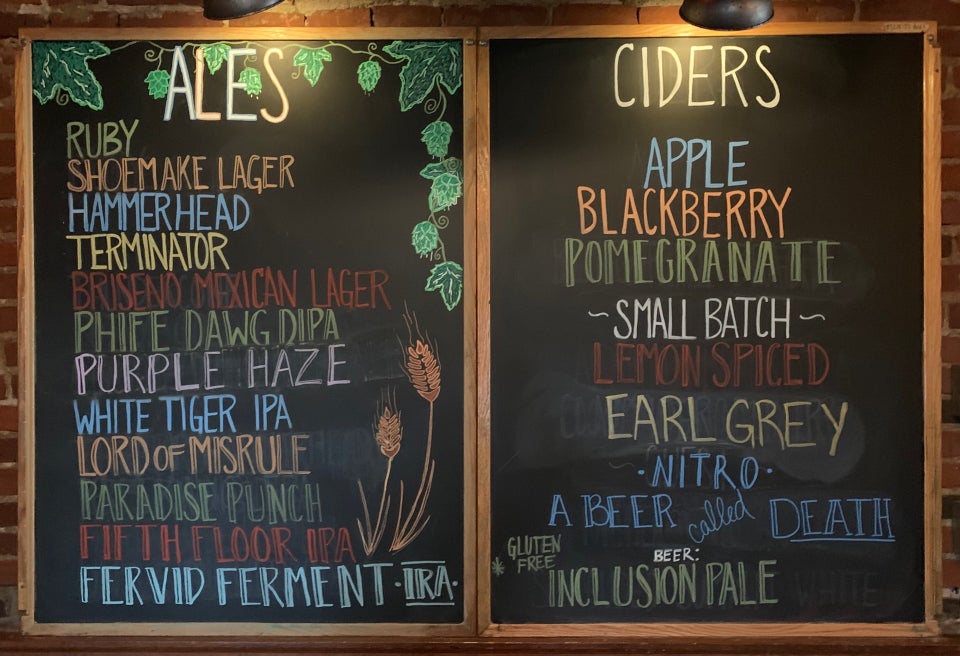 ALES
RUBY
SHOEMAKE LAGER
HAMMERHEAD
TERMINATOR
BRISENO MEXICAN LAGER
PHIFE DAWG DIPA
PURPLE HAZE
WHITE TIGER IPA
LORD OF MISRULE
PARADISE PUNCH
FIFTH FLOOR IPA
FERVID FERMENT · IRA ·
CIDERS
APPLE
BLACKBERRY
POMEGRANATE
~SMALL BATCH~
LEMON SPICED
EARL GREY
· NITRO ·
A BEER called DEATH
* GLUTEN
FREE
BEER:
INCLUSION PALE
WHITE